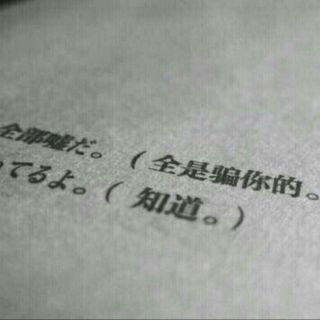 全部嘘だ。(全是骗你的。
ってるよ。(知道。)